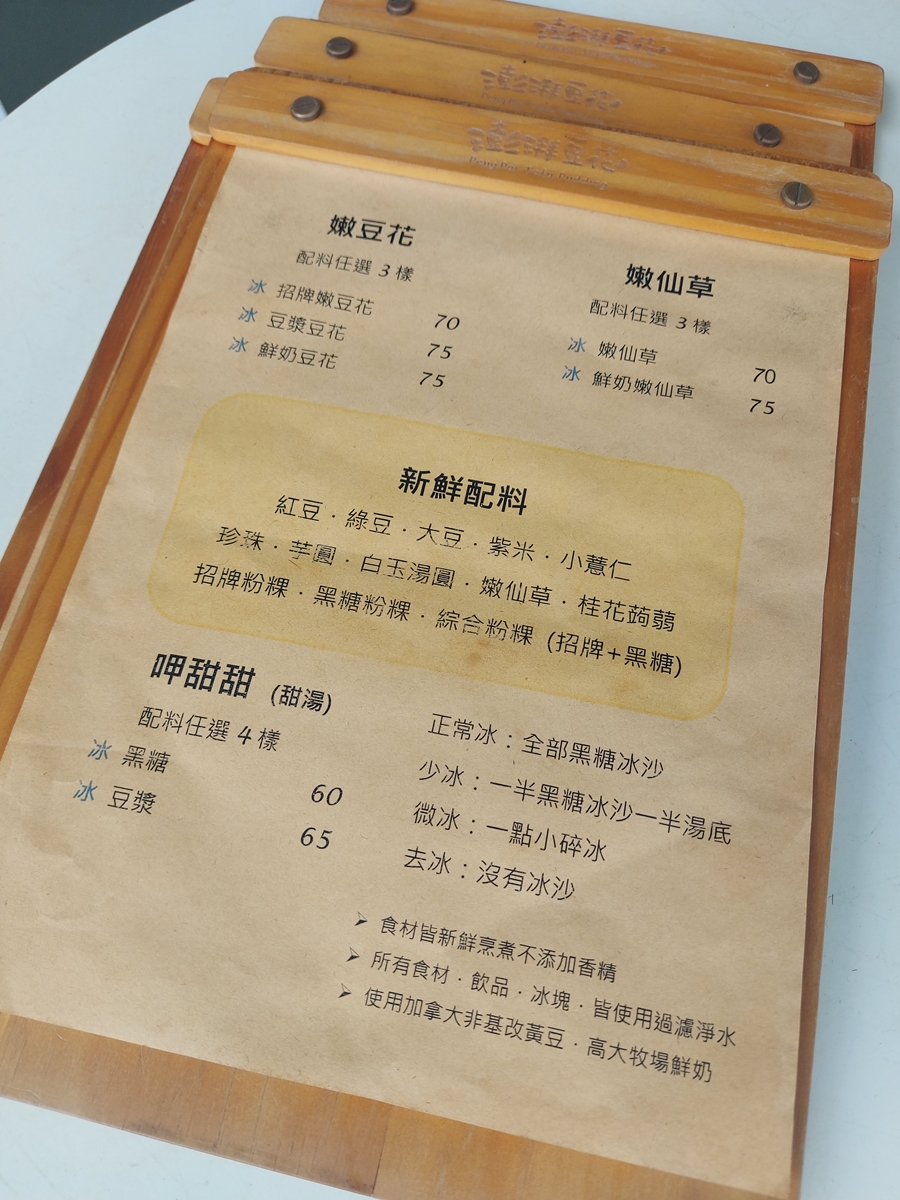 澎湃豆花
澎湃豆花
澎湃豆花
PengPai Tofu Pudding
嫩豆花
配料任選 3 樣
冰 招牌嫩豆花 70
冰 豆漿豆花 75
冰 鮮奶豆花 75
嫩仙草
配料任選 3 樣
冰 嫩仙草 70
冰 鮮奶嫩仙草 75
新鮮配料
紅豆．綠豆．大豆．紫米．小薏仁
珍珠．芋圓．白玉湯圓．嫩仙草．桂花蒟蒻
招牌粉粿．黑糖粉粿．綜合粉粿 (招牌+黑糖)
呷甜甜 (甜湯)
配料任選 4 樣
冰 黑糖 60
冰 豆漿 65
正常冰：全部黑糖冰沙
少冰：一半黑糖冰沙一半湯底
微冰：一點小碎冰
去冰：沒有冰沙
➢ 食材皆新鮮烹煮不添加香精
➢ 所有食材．飲品．冰塊．皆使用過濾淨水
➢ 使用加拿大非基改黃豆．高大牧場鮮奶